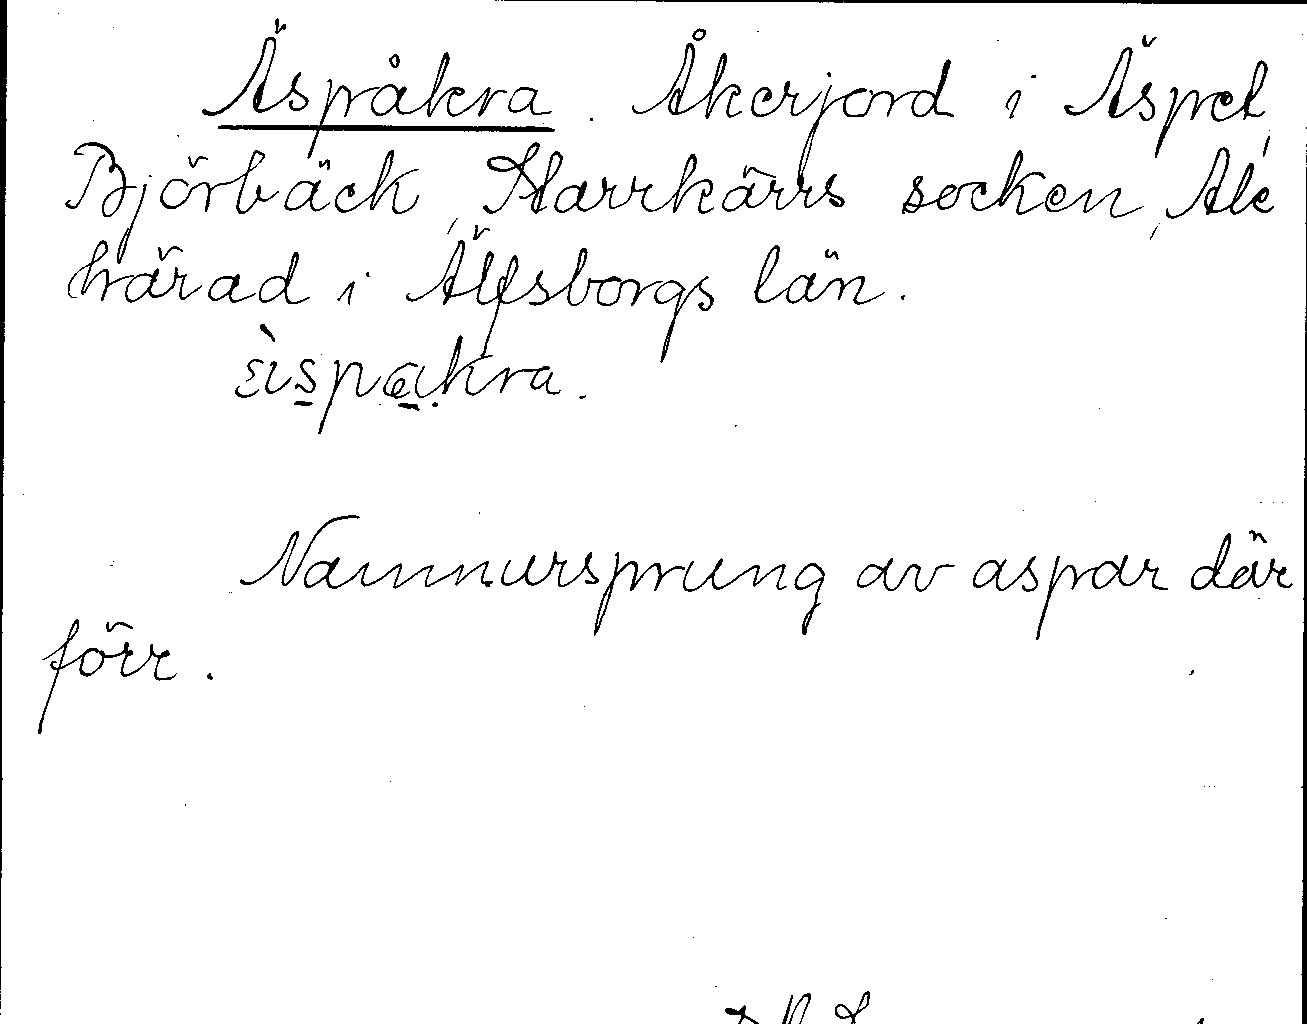 Äspråkra. Åkerjord i Äspet,
Björbäck, Starrkärrs socken, Ale
härad i Älfsborgs län.
Namnursprung av aspar där
förr.